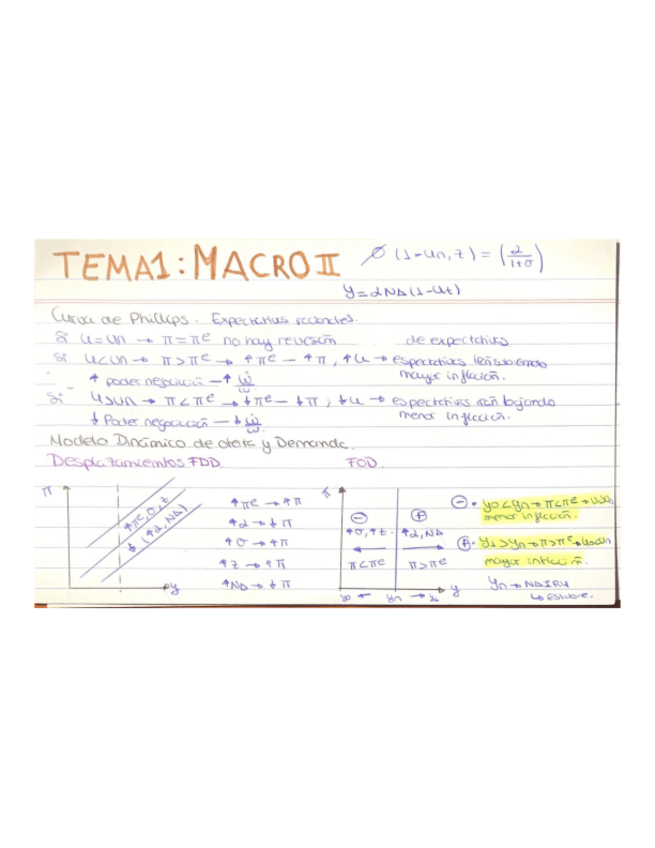 TEMA1: MACRO II ∅ (1-un, z) = (2/1+σ)
y = 2NA(1-ut)
Curva de Phillips. Expectativas racionales.
Si u=un → π=πe no hay revisión de expectativas
Si u<un → π>πe → ↑πe - ↑π, ↑u → espectativas
mayor inflación.
↑ poder negociación → ↑ ẇ/w
Si u>un → π<πe → ↓πe - ↓π, ↓u → espectativas bajando
menor inflación.
↓ Poder negociación → ↓ ẇ/w
Modelo Dinámico de oferta y Demanda.
Desplazamientos FDD. FOD.
π
↑πe, σ, z
↓ (↑2, NA)
y
↑πe → ↑π
↑2 → ↓π
↑σ → ↑π
↑z → ↑π
↑NA → ↓π
π
⊖ ⊕
↑σ, ↑z. ↑2, NA
π<πe π>πe
y0 ← yn → y1 y
⊖. y0<yn → π<πe → u>un
menor inflación.
⊕. y1>yn → π>πe → u<un
mayor inflación.
yn → NAIRU
↳ estable.